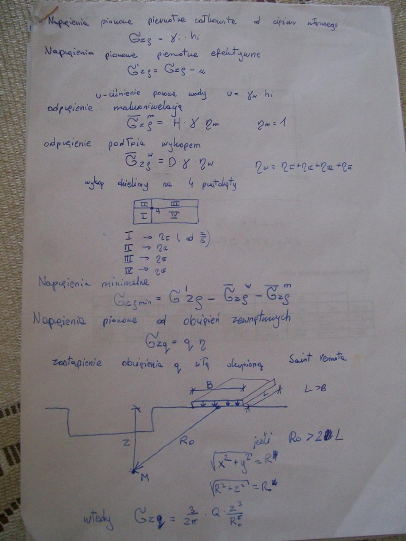 Naprężenia pionowe pierwotne całkowite od ciężaru własnego
σzρ = γ · hi
Naprężenia pionowe pierwotne efektywne
σ'zρ = σzρ - u
u - ciśnienie porowe wody u = γw · hi
odprężenie makroniwelacją
σ̄zρ^m = H · γ ηm ηm = 1
odprężenie podłoża wykopem
σ̄zρ^w = D γ ηw ηw = ηI + ηII + ηIII + ηIV
wykop dzielimy na 4 prostokąty
II III
I IV
I → ηI (od z/B)
II → ηII
III → ηIII
IV → ηIV
Naprężenia minimalne
σzρmin = σ'zρ - σ̄zρ^w - σ̄zρ^m
Naprężenia pionowe od obciążeń zewnętrznych
σzq = q η
zastąpienie obciążenia q siłą skupioną Saint Venanta
B L L>B
z R0 M
jeśli R0 > 2L
√x²+y² = R
√R²+z² = R0
wtedy σzq = 3/2π · Q · z³/R0⁵